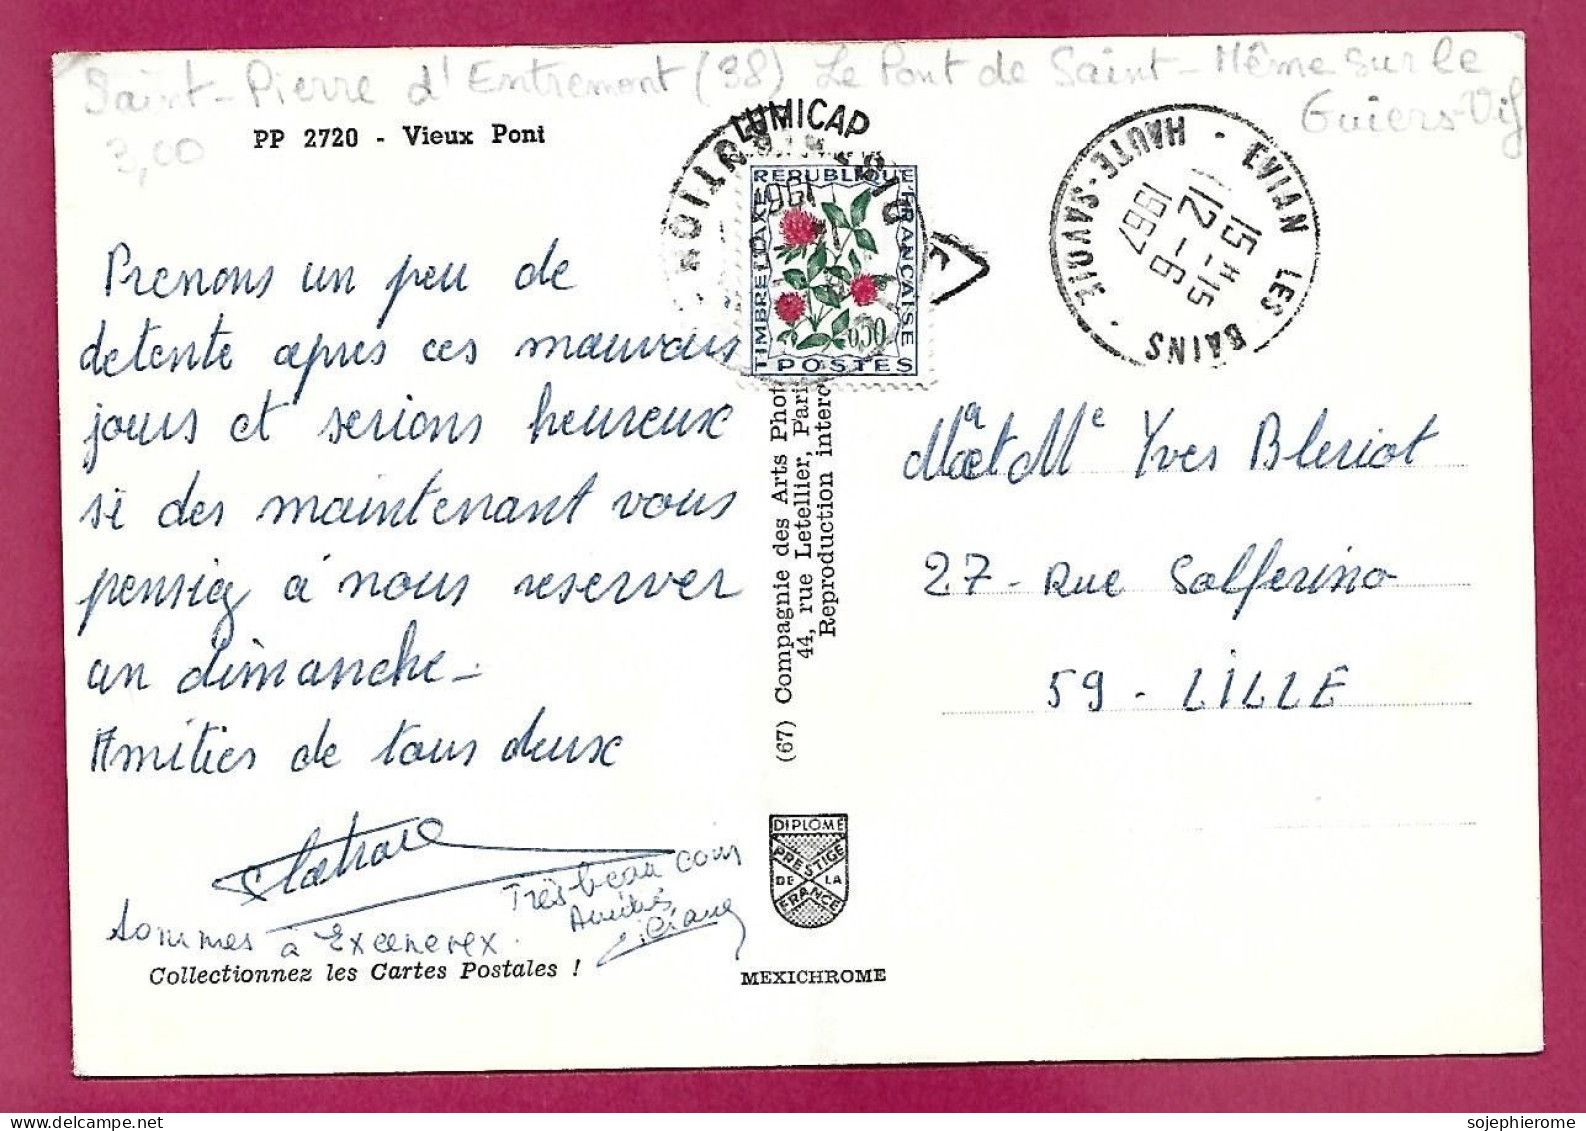 Saint-Pierre d'Entremont (38) Le Pont de Saint-Même sur le
Guiers-Vif
3,00
PP 2720 - Vieux Pont
LUMICAP
REPUBLIQUE FRANÇAISE
TIMBRE TAXE
0,50
POSTES
EVIAN LES BAINS
HAUTE-SAVOIE
15 H 15
12 - 6
1967
Prenons un peu de
detente apres ces mauvais
jours et serions heureux
si des maintenant vous
pensiez à nous reserver
un dimanche -
Amities de tous deux
sommes à Excenevex.
Très beau coin
Amitiés
Liliane
Collectionnez les Cartes Postales !
(67) Compagnie des Arts Phot
44, rue Letellier, Pari
Reproduction interd
DIPLOME
PRESTIGE
DE LA
FRANCE
MEXICHROME
Mr et Me Yves Bleriot
27 - Rue Solferino
59 - LILLE
sojephierome